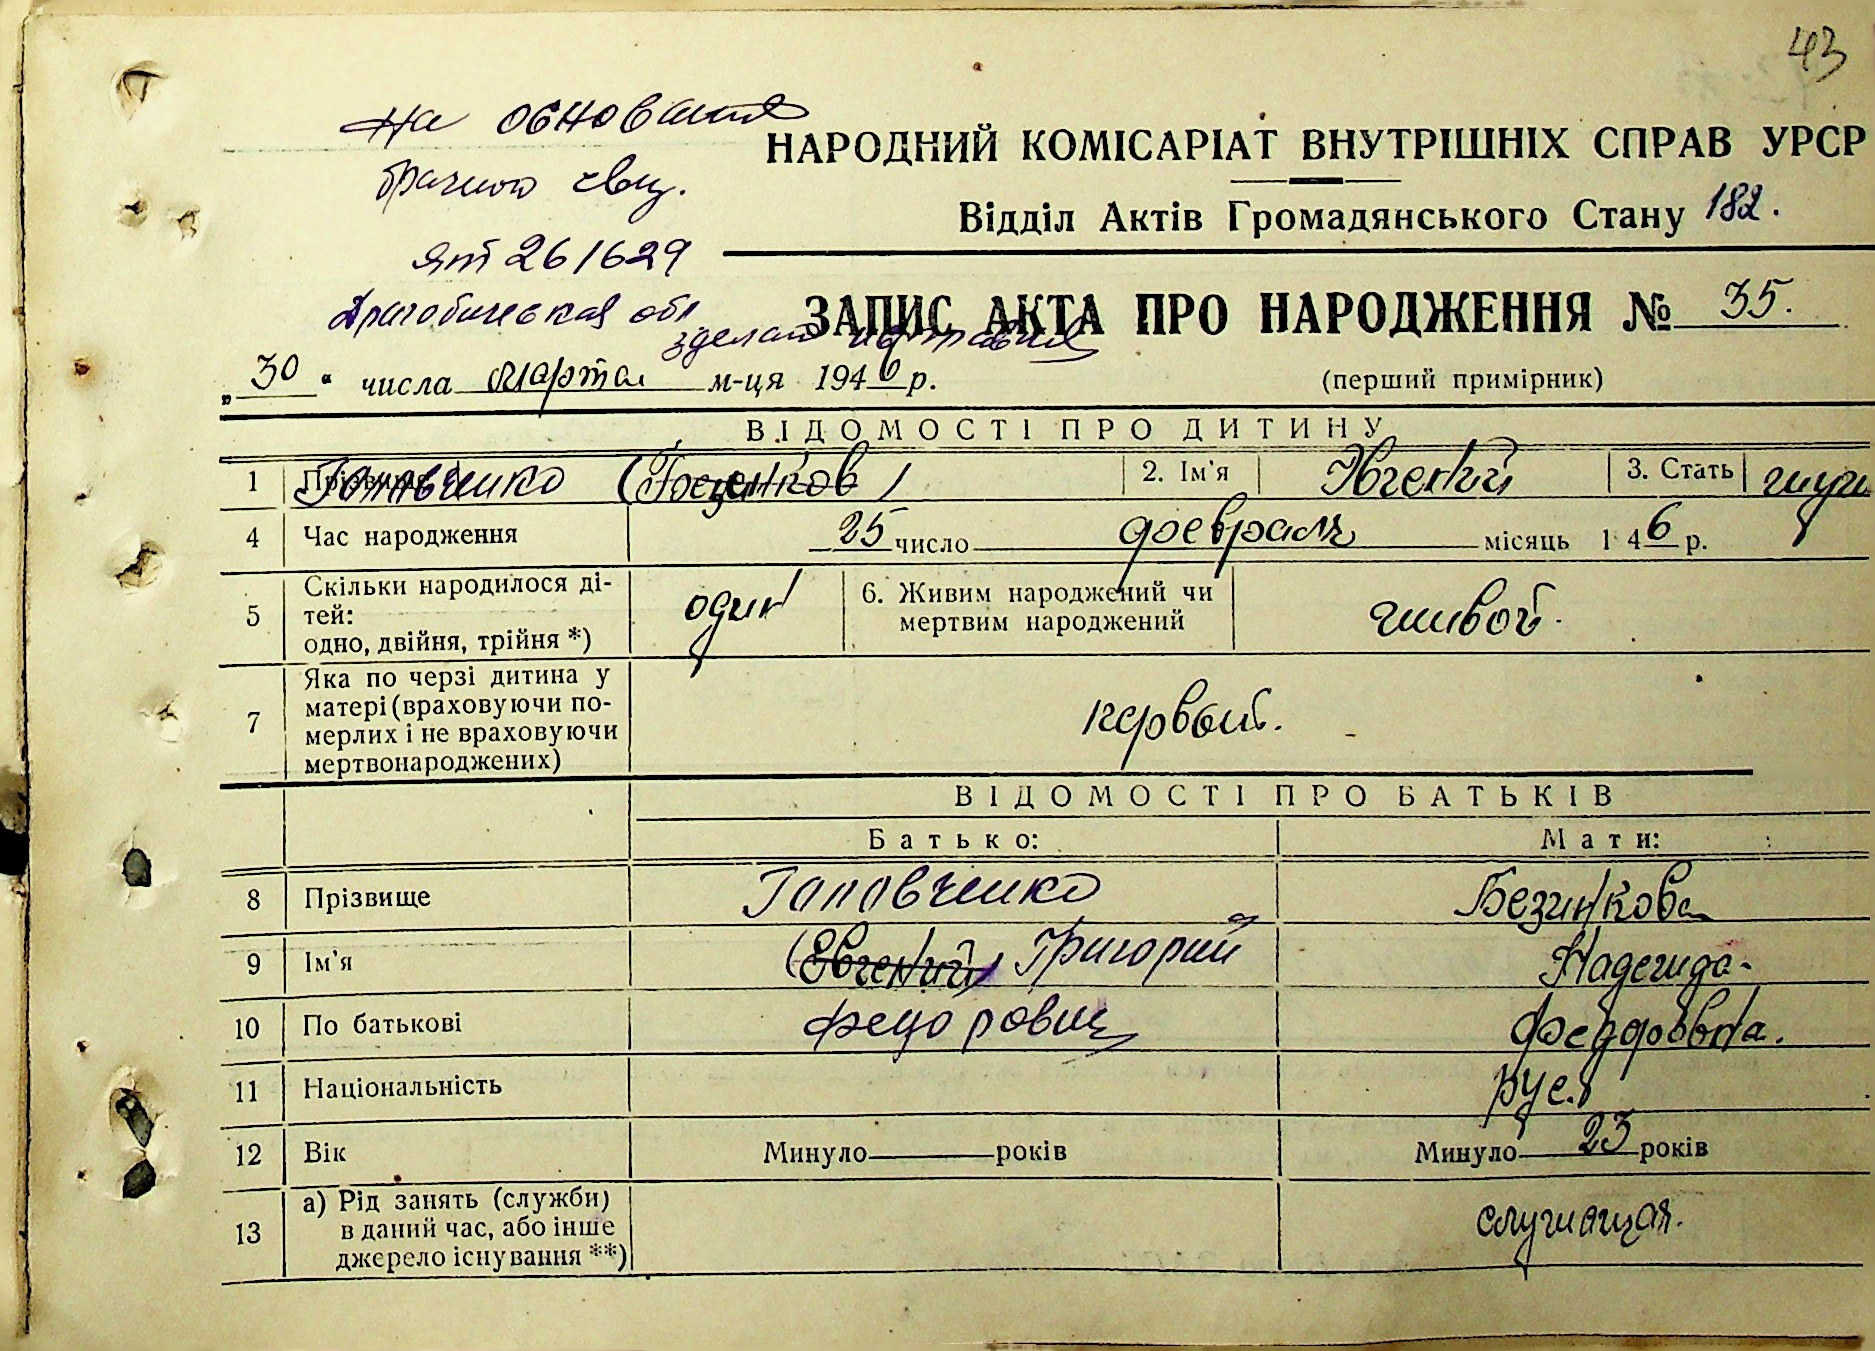 43
На основании
брачного свид.
ЯТ 261629
Дрогобическая обл
зделано исправления
НАРОДНИЙ КОМІСАРІАТ ВНУТРІШНІХ СПРАВ УРСР
Відділ Актів Громадянського Стану 182.
ЗАПИС АКТА ПРО НАРОДЖЕННЯ № 35.
„30“ числа марта м-ця 1946 р. (перший примірник)
ВІДОМОСТІ ПРО ДИТИНУ
1 Прізвище Головченко 2. Ім'я Євгений 3. Стать муж
4 Час народження 25 число февраля місяць 1 46 р.
5 Скільки народилося ді-
тей:
одно, двійня, трійня *) один 6. Живим народжений чи
мертвим народжений живой.
7 Яка по черзі дитина у
матері (враховуючи по-
мерлих і не враховуючи
мертвонароджених) первый.
ВІДОМОСТІ ПРО БАТЬКІВ
Батько: Мати:
8 Прізвище Головченко Безинкова
9 Ім'я (Евгений) Григорий Надежда
10 По батькові Федорович Федоровна.
11 Національність рус.
12 Вік Минуло років Минуло 23 років
13 а) Рід занять (служби)
в даний час, або інше
джерело існування **) служащая.